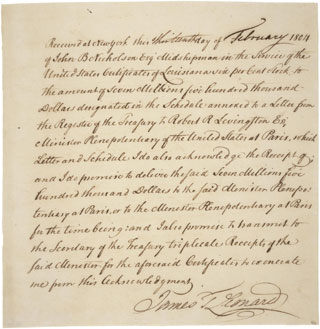 Received at New York this thirteenth day of February 1804
of John B Nicholson Esqr. Midshipman in the Service of the
United States Certificates of Louisiana six per Cent Stock to
the amount of Seven Millions five hundred thousand
Dollars designated in the Schedule annexed to a Letter from
the Register of the Treasury to Robert R Livingston Esqr.
Minister Plenepotentiary of the United States at Paris, which
Letter and Schedule I do also acknowledge the Receipt of
and I do promise to deliver the said Seven Millions five
hundred thousand Dollars to the said Minister Plenepo=
tentiary at Paris, or to the Minister Plenepotentiary at Paris
for the time being: and I also promise to transmit to
the Secretary of the Treasury triplicate Receipts of the
said Minister for the aforesaid Certificates to exonerate
me from this Acknowledgment.
James T Leonard